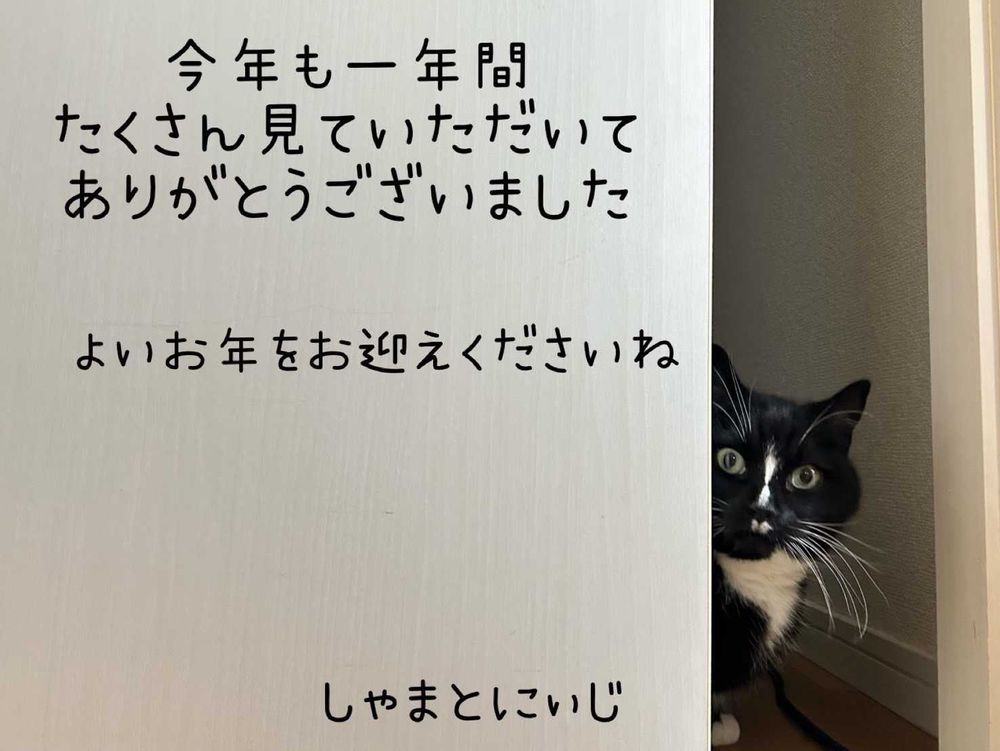 今年も一年間
たくさん見ていただいて
ありがとうございました
よいお年をお迎えくださいね
しゃまとにいじ